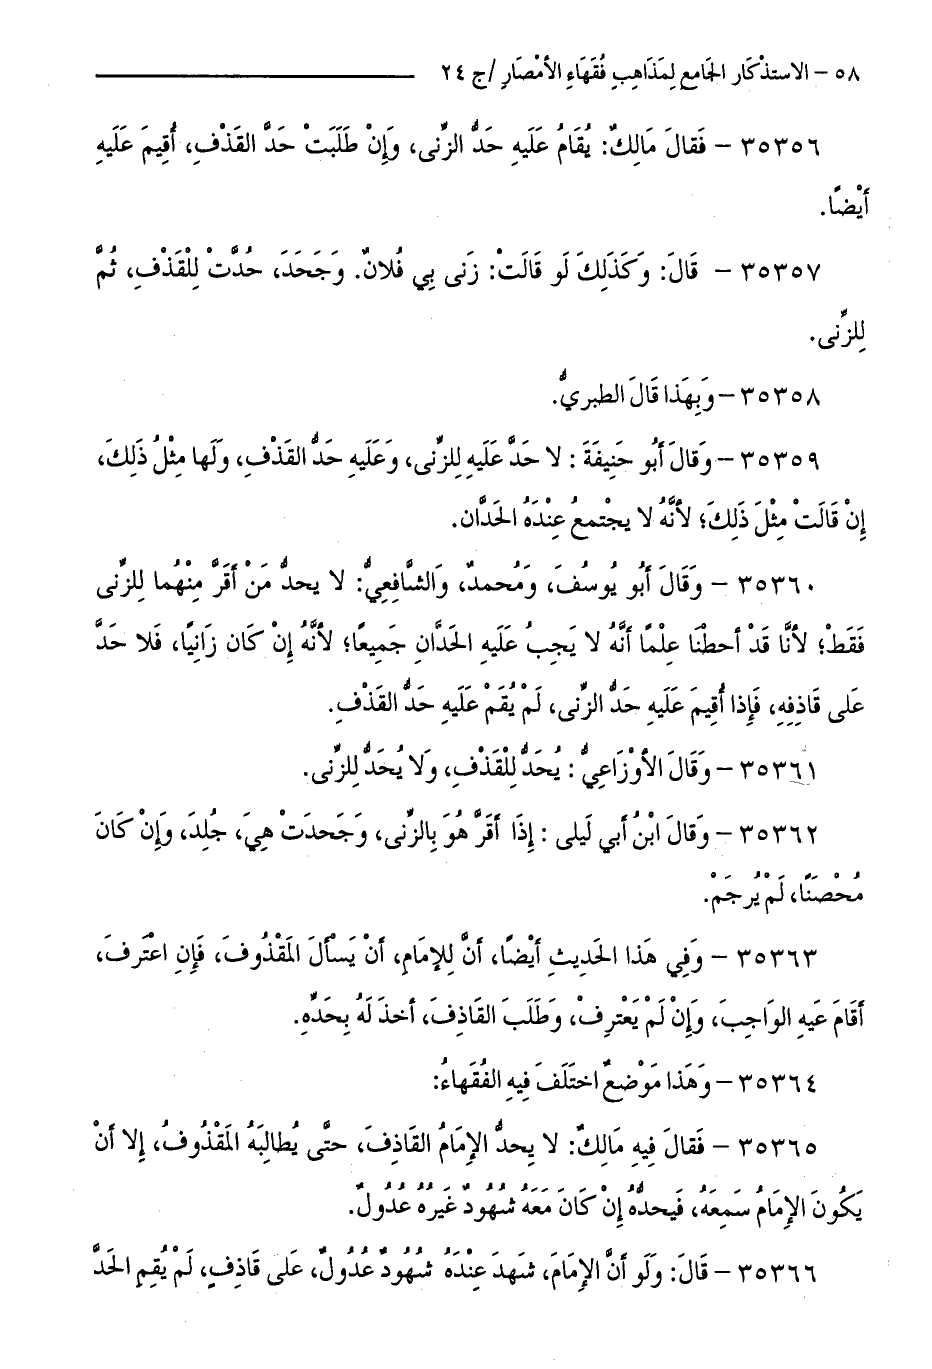 ٥٨ – الاستذْكار الجَامع لِمَذَاهِبِ فُقَهاءِ الأمْصَارِ /ج ٢٤
٣٥٣٥٦ – فَقالَ مَالِكٌ: يُقَامُ عَلَيهِ حَدُّ الزِّنى، وَإِنْ طَلَبَتْ حَدَّ القَذْفِ، أُقِيمَ عَلَيهِ
أيْضًا.
٣٥٣٥٧ – قَالَ: وَكَذَلِكَ لَو قَالَتْ: زَنى بِي فُلانٌ. وَجَحَدَ، حُدَّتْ لِلْقَذْفِ، ثُمَّ
لِلزِّنى.
٣٥٣٥٨ – وَبِهَذا قَالَ الطبريُّ.
٣٥٣٥٩ – وَقالَ أَبُو حَنِيفَةَ : لا حَدَّ عَلَيهِ لِلزِّنى، وَعَلَيهِ حَدُّ القَذْفِ، وَلَها مِثْلُ ذَلِكَ،
إِنْ قَالَتْ مِثْلَ ذَلِكَ؛ لأنَّهُ لا يجتْمعُ عِنْدَهُ الحَدَّان.
٣٥٣٦٠ – وَقَالَ أَبُو يُوسُفَ، وَمُحمدٌ، وَالشَّافِعِيُّ: لا يحدُّ مَنْ أقَرَّ مِنْهُما لِلزِّنى
فَقَطْ؛ لأنَّا قَدْ أحطْنَا عِلْمًا أنَّهُ لا يَجِبُ عَلَيهِ الحَدَّان جَمِيعًا؛ لأنَّهُ إِنْ كَان زَانيًا، فَلا حَدَّ
عَلى قَاذِفِهِ، فَإِذا أُقِيمَ عَلَيهِ حَدُّ الزِّنى، لَمْ يُقَمْ عَلَيهِ حَدُّ القَذْفِ.
٣٥٣٦١ – وَقَالَ الأوْزَاعِيُّ : يُحَدُّ لِلْقَذْفِ، وَلا يُحَدُّ لِلزِّنى.
٣٥٣٦٢ – وَقَالَ ابْنُ أبي لَيلى : إِذَا أقَرَّ هُوَ بِالزِّنى، وَجَحدَتْ هِيَ، جُلِدَ، وَإِنْ كَانَ
مُحْصَنًا، لَمْ يُرجَمْ.
٣٥٣٦٣ – وَفِي هَذا الحَدِيثِ أيْضًا، أنَّ لِلإِمَامِ، أنْ يَسْألَ المَقْذُوفَ، فَإِنِ اعْتَرفَ،
أقَامَ عَيهِ الوَاجِبَ، وَإِنْ لَمْ يَعْترِفْ، وَطَلَبَ القَاذِفَ، أخذَ لَهُ بِحَدِّهِ.
٣٥٣٦٤ – وَهَذا مَوْضعٌ اختَلَفَ فِيهِ الفُقَهاءُ:
٣٥٣٦٥ – فَقالَ فِيهِ مَالِكٌ: لا يحدُّ الإِمَامُ القَاذِفَ، حتَّى يُطالِبَهُ المَقْذُوفُ، إِلا أنْ
يَكُونَ الإِمَامُ سَمِعَهُ، فَيحدُّهُ إِنْ كَانَ مَعَهُ شهُودٌ غَيرُهُ عُدُولٌ.
٣٥٣٦٦ – قَالَ: وَلَو أنَّ الإِمَامَ، شَهدَ عِنْدَهُ شهُودٌ عُدُولٌ، عَلى قَاذِفٍ، لَمْ يُقِمِ الحَدَّ